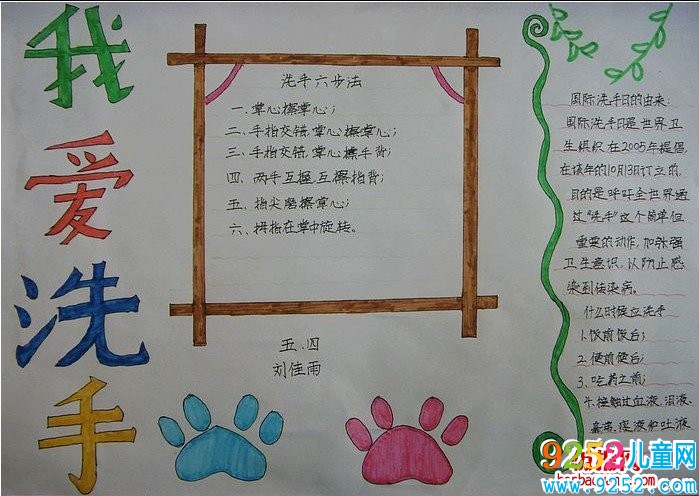 我
爱
洗
手
洗手六步法
一.掌心擦掌心;
二.手指交错,掌心擦掌心;
三.手指交错,掌心擦手背;
四.两手互握,互擦指背;
五.指尖磨擦掌心;
六.拇指在掌中旋转。
五.四
刘佳雨
国际洗手日的由来:
国际洗手日是世界卫
生组织在2005年提倡,
在该年的10月13日订之前,
目的是呼吁全世界通
过"洗手"这个简单但
重要的动作,加强
卫生意识,以防止感
染到传染病。
什么时候应洗手
1.饭前饭后;
2.便前便后;
3.吃药之前;
4.接触过血液、泪液、
鼻涕、痰液和吐液
9252儿童网
www.9252.com